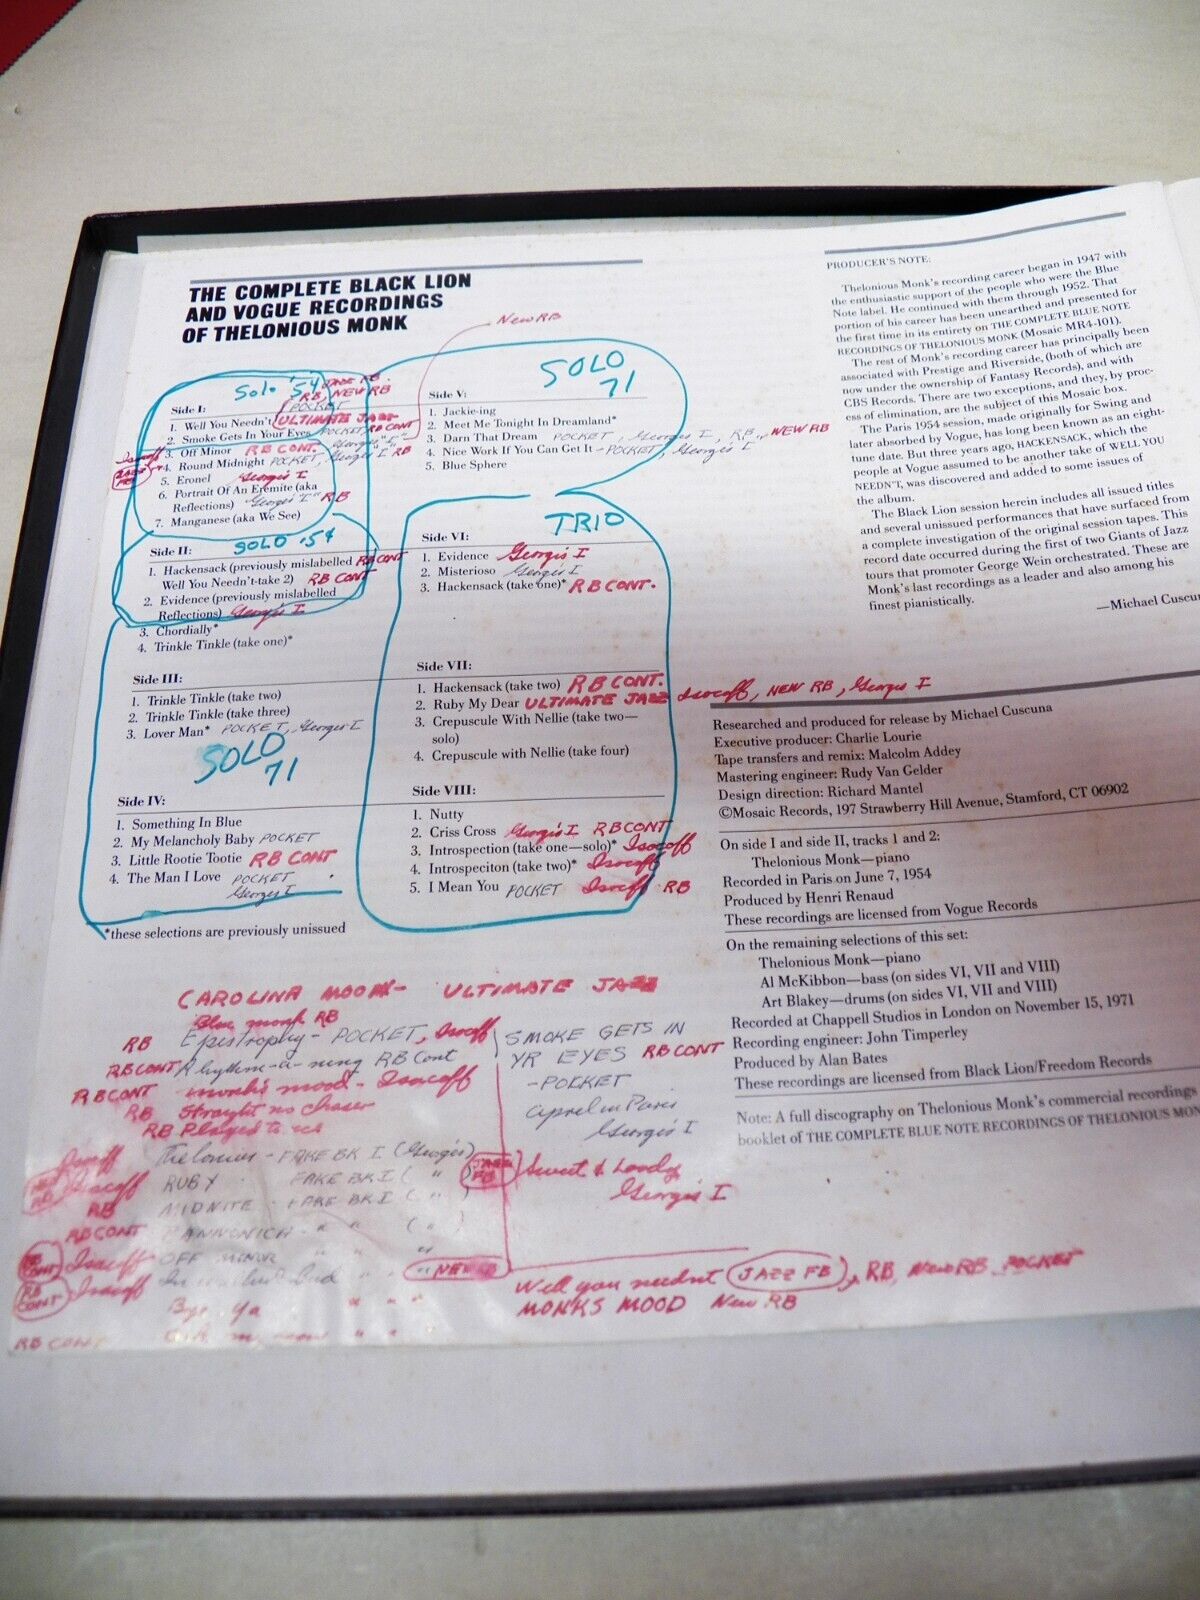 THE COMPLETE BLACK LION
AND VOGUE RECORDINGS
OF THELONIOUS MONK
New RB
Solo '54
RB, NEW RB
POCKET
Side I:
1. Well You Needn't ULTIMATE JAZZ
2. Smoke Gets In Your Eyes POCKET, RB CONT
3. Off Minor RB CONT. Georgis "I"
Isacoff
4. Round Midnight POCKET, Georgis I RB
5. Eronel Georgis I
6. Portrait Of An Eremite (aka
Reflections) Georgis "I" RB
7. Manganese (aka We See)
Side II: SOLO '54
1. Hackensack (previously mislabelled RB CONT
Well You Needn't-take 2) RB CONT
2. Evidence (previously mislabelled
Reflections) Georgis I
3. Chordially*
4. Trinkle Tinkle (take one)*
Side III:
1. Trinkle Tinkle (take two)
2. Trinkle Tinkle (take three)
3. Lover Man* POCKET, Georgis I
SOLO
71
Side IV:
1. Something In Blue
2. My Melancholy Baby POCKET
3. Little Rootie Tootie RB CONT
4. The Man I Love POCKET
Georgis I
*these selections are previously unissued
SOLO
71
Side V:
1. Jackie-ing
2. Meet Me Tonight In Dreamland*
3. Darn That Dream POCKET, Georgis I, RB, NEW RB
4. Nice Work If You Can Get It - POCKET, Georgis I
5. Blue Sphere
TRIO
Side VI:
1. Evidence Georgis I
2. Misterioso Georgis I
3. Hackensack (take one)* RB CONT.
Side VII:
1. Hackensack (take two) RB CONT.
2. Ruby My Dear ULTIMATE JAZZ Isacoff, NEW RB, Georgis I
3. Crepuscule With Nellie (take two—
solo)
4. Crepuscule with Nellie (take four)
Side VIII:
1. Nutty
2. Criss Cross Georgis I RB CONT
3. Introspection (take one—solo)* Isacoff
4. Introspeciton (take two)* Isacoff
5. I Mean You POCKET Isacoff RB
PRODUCER'S NOTE:
Thelonious Monk's recording career began in 1947 with
the enthusiastic support of the people who were the Blue
Note label. He continued with them through 1952. That
portion of his career has been unearthed and presented for
the first time in its entirety on THE COMPLETE BLUE NOTE
RECORDINGS OF THELONIOUS MONK (Mosaic MR4-101).
The rest of Monk's recording career has principally been
associated with Prestige and Riverside, (both of which are
now under the ownership of Fantasy Records), and with
CBS Records. There are two exceptions, and they, by proc-
ess of elimination, are the subject of this Mosaic box.
The Paris 1954 session, made originally for Swing and
later absorbed by Vogue, has long been known as an eight-
tune date. But three years ago, HACKENSACK, which the
people at Vogue assumed to be another take of WELL YOU
NEEDN'T, was discovered and added to some issues of
the album.
The Black Lion session herein includes all issued titles
and several unissued performances that have surfaced from
a complete investigation of the original session tapes. This
record date occurred during the first of two Giants of Jazz
tours that promoter George Wein orchestrated. These are
Monk's last recordings as a leader and also among his
finest pianistically.
—Michael Cuscuna
Researched and produced for release by Michael Cuscuna
Executive producer: Charlie Lourie
Tape transfers and remix: Malcolm Addey
Mastering engineer: Rudy Van Gelder
Design direction: Richard Mantel
©Mosaic Records, 197 Strawberry Hill Avenue, Stamford, CT 06902
On side I and side II, tracks 1 and 2:
Thelonious Monk—piano
Recorded in Paris on June 7, 1954
Produced by Henri Renaud
These recordings are licensed from Vogue Records
On the remaining selections of this set:
Thelonious Monk—piano
Al McKibbon—bass (on sides VI, VII and VIII)
Art Blakey—drums (on sides VI, VII and VIII)
Recorded at Chappell Studios in London on November 15, 1971
Recording engineer: John Timperley
Produced by Alan Bates
These recordings are licensed from Black Lion/Freedom Records
Note: A full discography on Thelonious Monk's commercial recordings
booklet of THE COMPLETE BLUE NOTE RECORDINGS OF THELONIOUS MON
CAROLINA MOON - ULTIMATE JAZZ
Blue monk RB
RB Epistrophy - POCKET, Isacoff
RB CONT Rhythm-a-ning RB Cont
RB CONT monk's mood - Isacoff
RB Straight no chaser
RB Played
Isacoff Thelonius - FAKE BK I (Georgis)
Isacoff RUBY FAKE BK I ( " ) JAZZ FB
RB MIDNITE FAKE BK I ( " )
RB CONT PANNONICA " " ( " )
RB CONT Isacoff OFF MINOR " " "
RB CONT Isacoff " " " NEW RB
Bye Ya " " "
RB CONT " "
SMOKE GETS IN
YR EYES RB CONT
-POCKET
April in Paris
Georgis I
Sweet & Lovely
Georgis I
Well you neednt JAZZ FB, RB, New RB POCKET
MONKS MOOD New RB